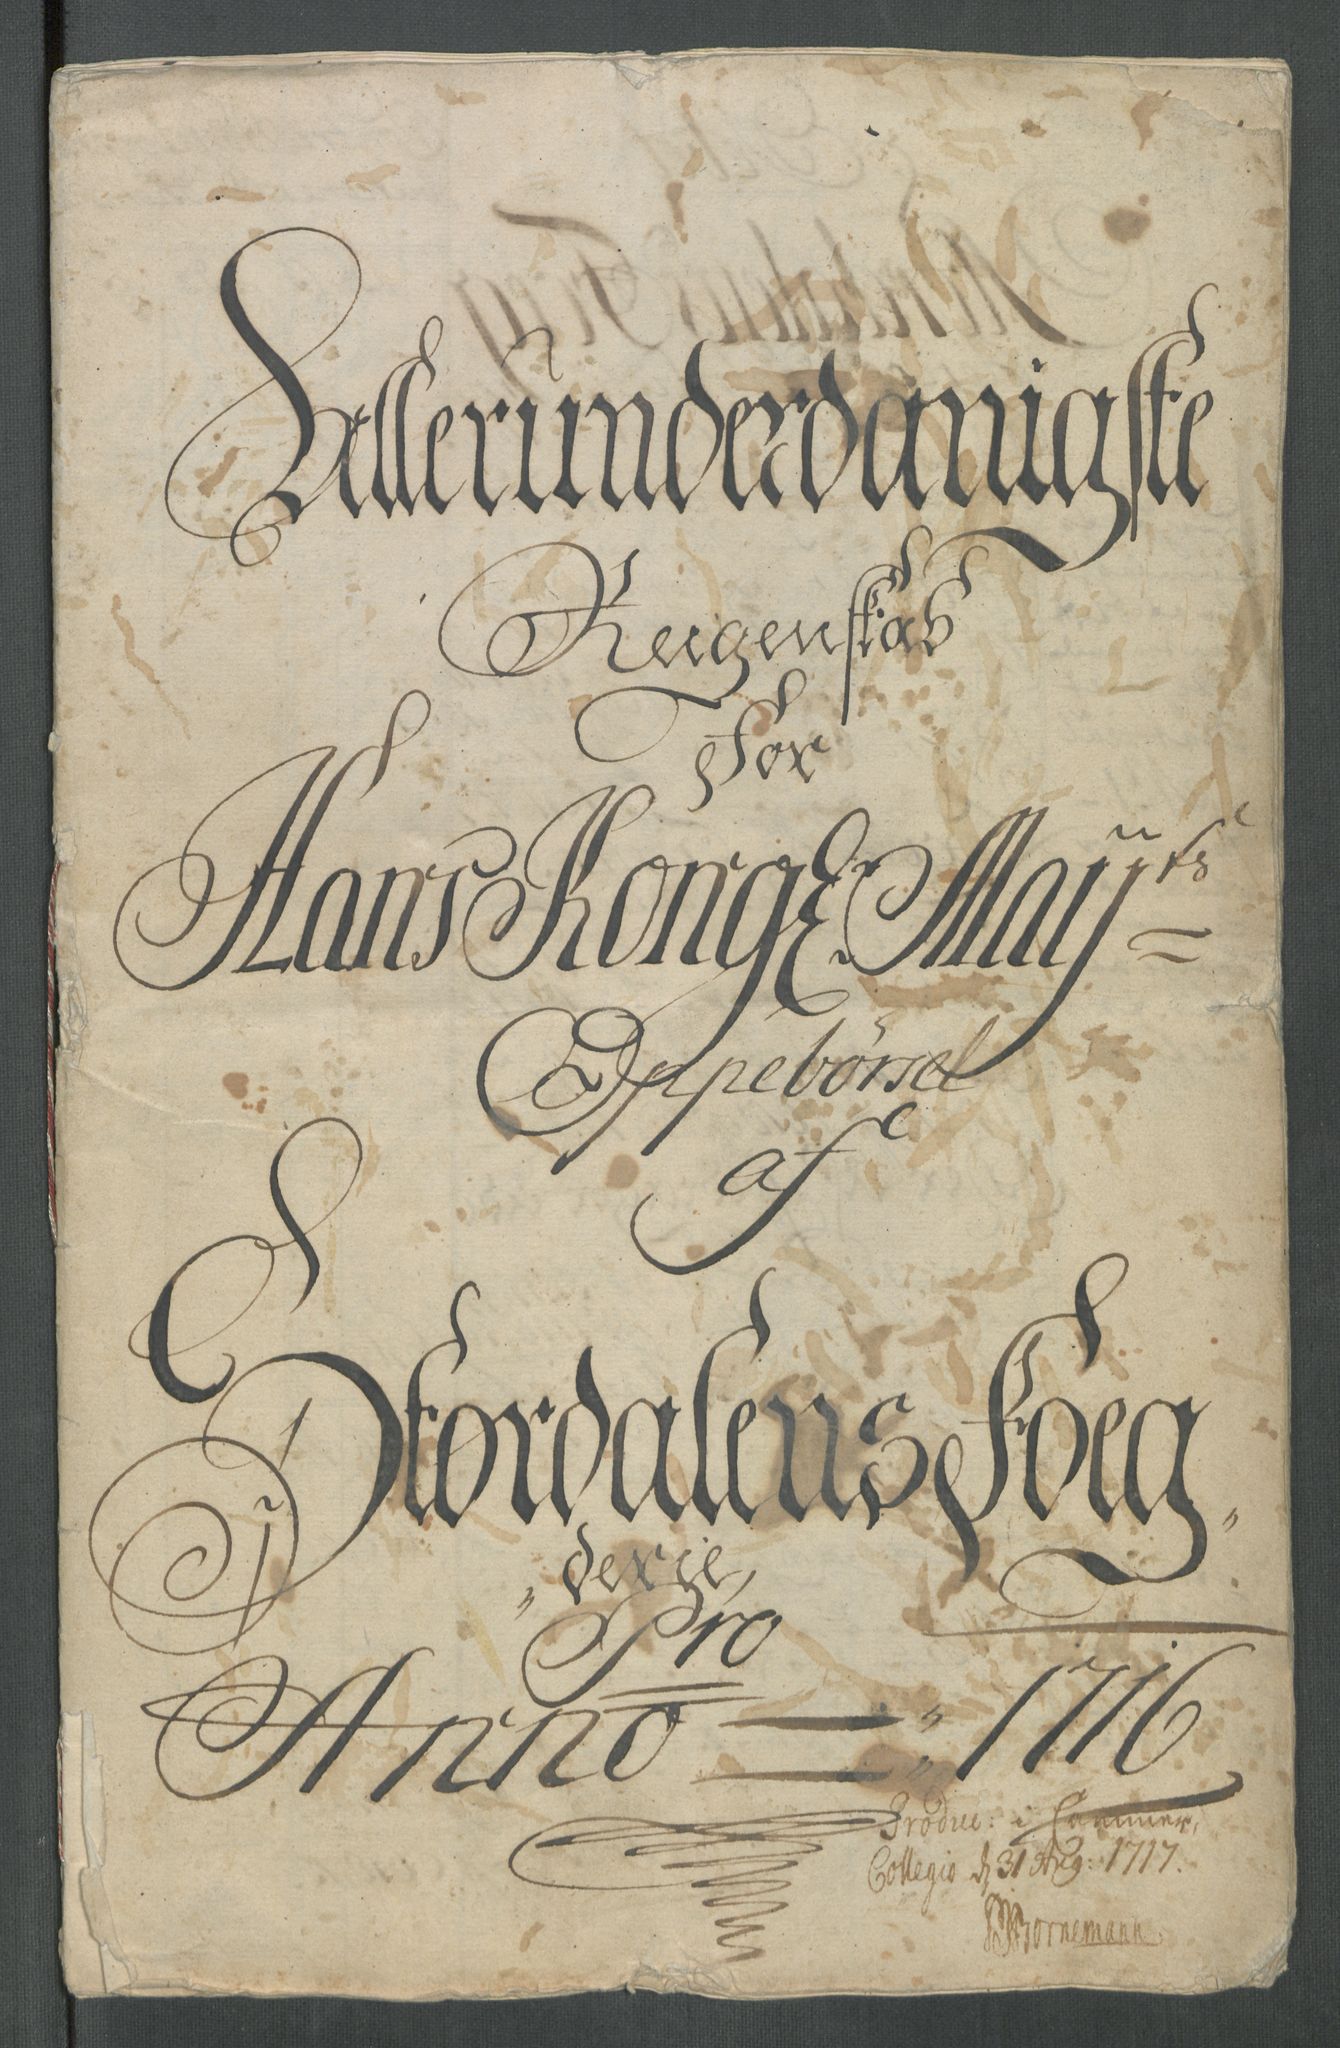 Allerunderdanigste
Reigenskab
For
Hans Kongl: Mayjts
Oppebörsel
af
Stordalens Foeg„
„derie,
Pro
Anno 1716
Produc: i Cammer,
Collegio d 31 Aug: 1717.
Bornemann